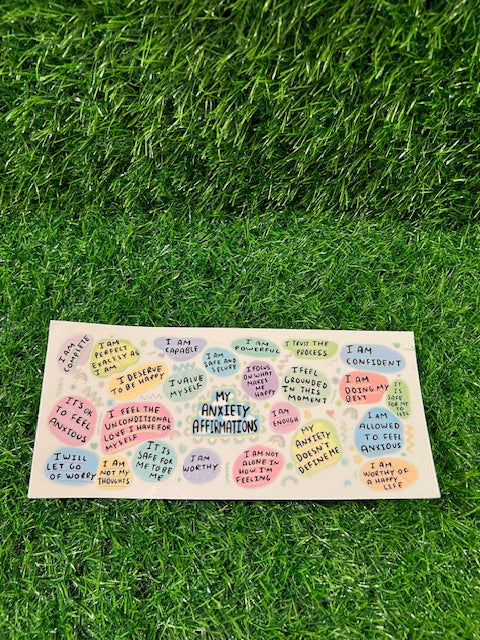 I AM
COMPLETE
I AM
PERFECT
EXACTLY AS
I AM
I AM
CAPABLE
I AM
POWERFUL
I TRUST THE
PROCESS
I AM
CONFIDENT
I DESERVE
TO BE HAPPY
I VALUE
MYSELF
I AM
SAFE AND
SECURE
I FOCUS
ON WHAT
MAKES
ME
HAPPY
I FEEL
GROUNDED
IN THIS
MOMENT
I AM
DOING MY
BEST
IT IS
SAFE
FOR ME
TO
IT'S OK
TO FEEL
ANXIOUS
I FEEL THE
UNCONDITIONAL
LOVE I HAVE FOR
MYSELF
MY
ANXIETY
AFFIRMATIONS
I AM
ENOUGH
MY
ANXIETY
DOESN'T
DEFINE ME
I AM
ALLOWED
TO FEEL
ANXIOUS
I WILL
LET GO
OF WORRY
I AM
NOT MY
THOUGHTS
IT IS
SAFE
FOR ME TO BE
ME
I AM
WORTHY
I AM NOT
ALONE IN
HOW I'M
FEELING
I AM
WORTHY OF
A HAPPY
LIFE